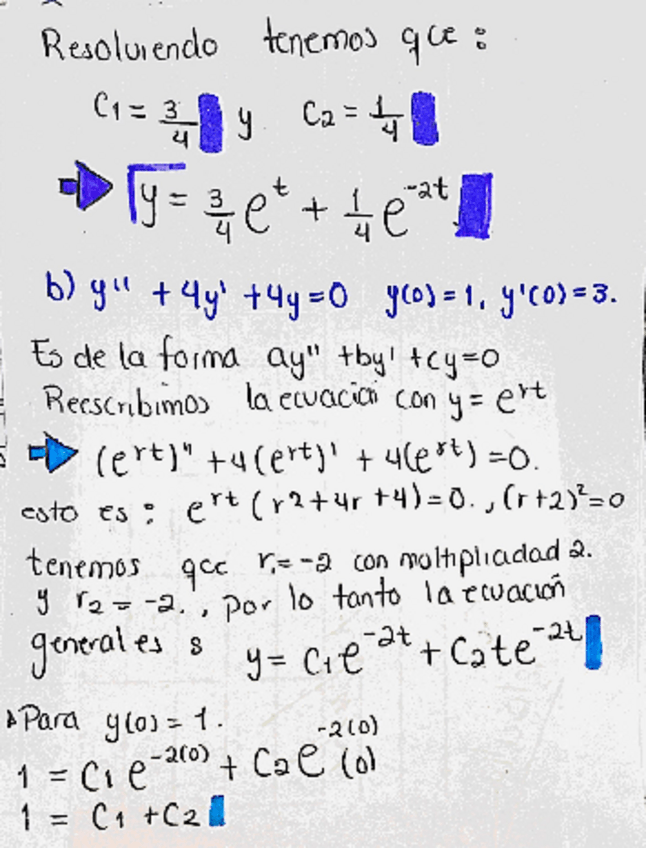 Resolviendo tenemos qce :
C1 = 3/4 y C2 = 1/4
⇒ y = 3/4 e^t + 1/4 e^-2t
b) y'' + 4y' + 4y = 0 y(0) = 1, y'(0) = 3.
Es de la forma ay'' + by' + cy = 0
Reescribimos la ecuación con y = e^rt
⇒ (e^rt)'' + 4(e^rt)' + 4(e^rt) = 0.
esto es : e^rt (r2 + 4r + 4) = 0. , (r+2)^2 = 0
tenemos qce r1 = -2 con moltipliadad 2.
y r2 = -2. , por lo tanto la ecuación
general es s y = C1e^-2t + C2te^-2t
Para y(0) = 1.
1 = C1 e^-2(0) + C2e^-2(0) (0)
1 = C1 + C2